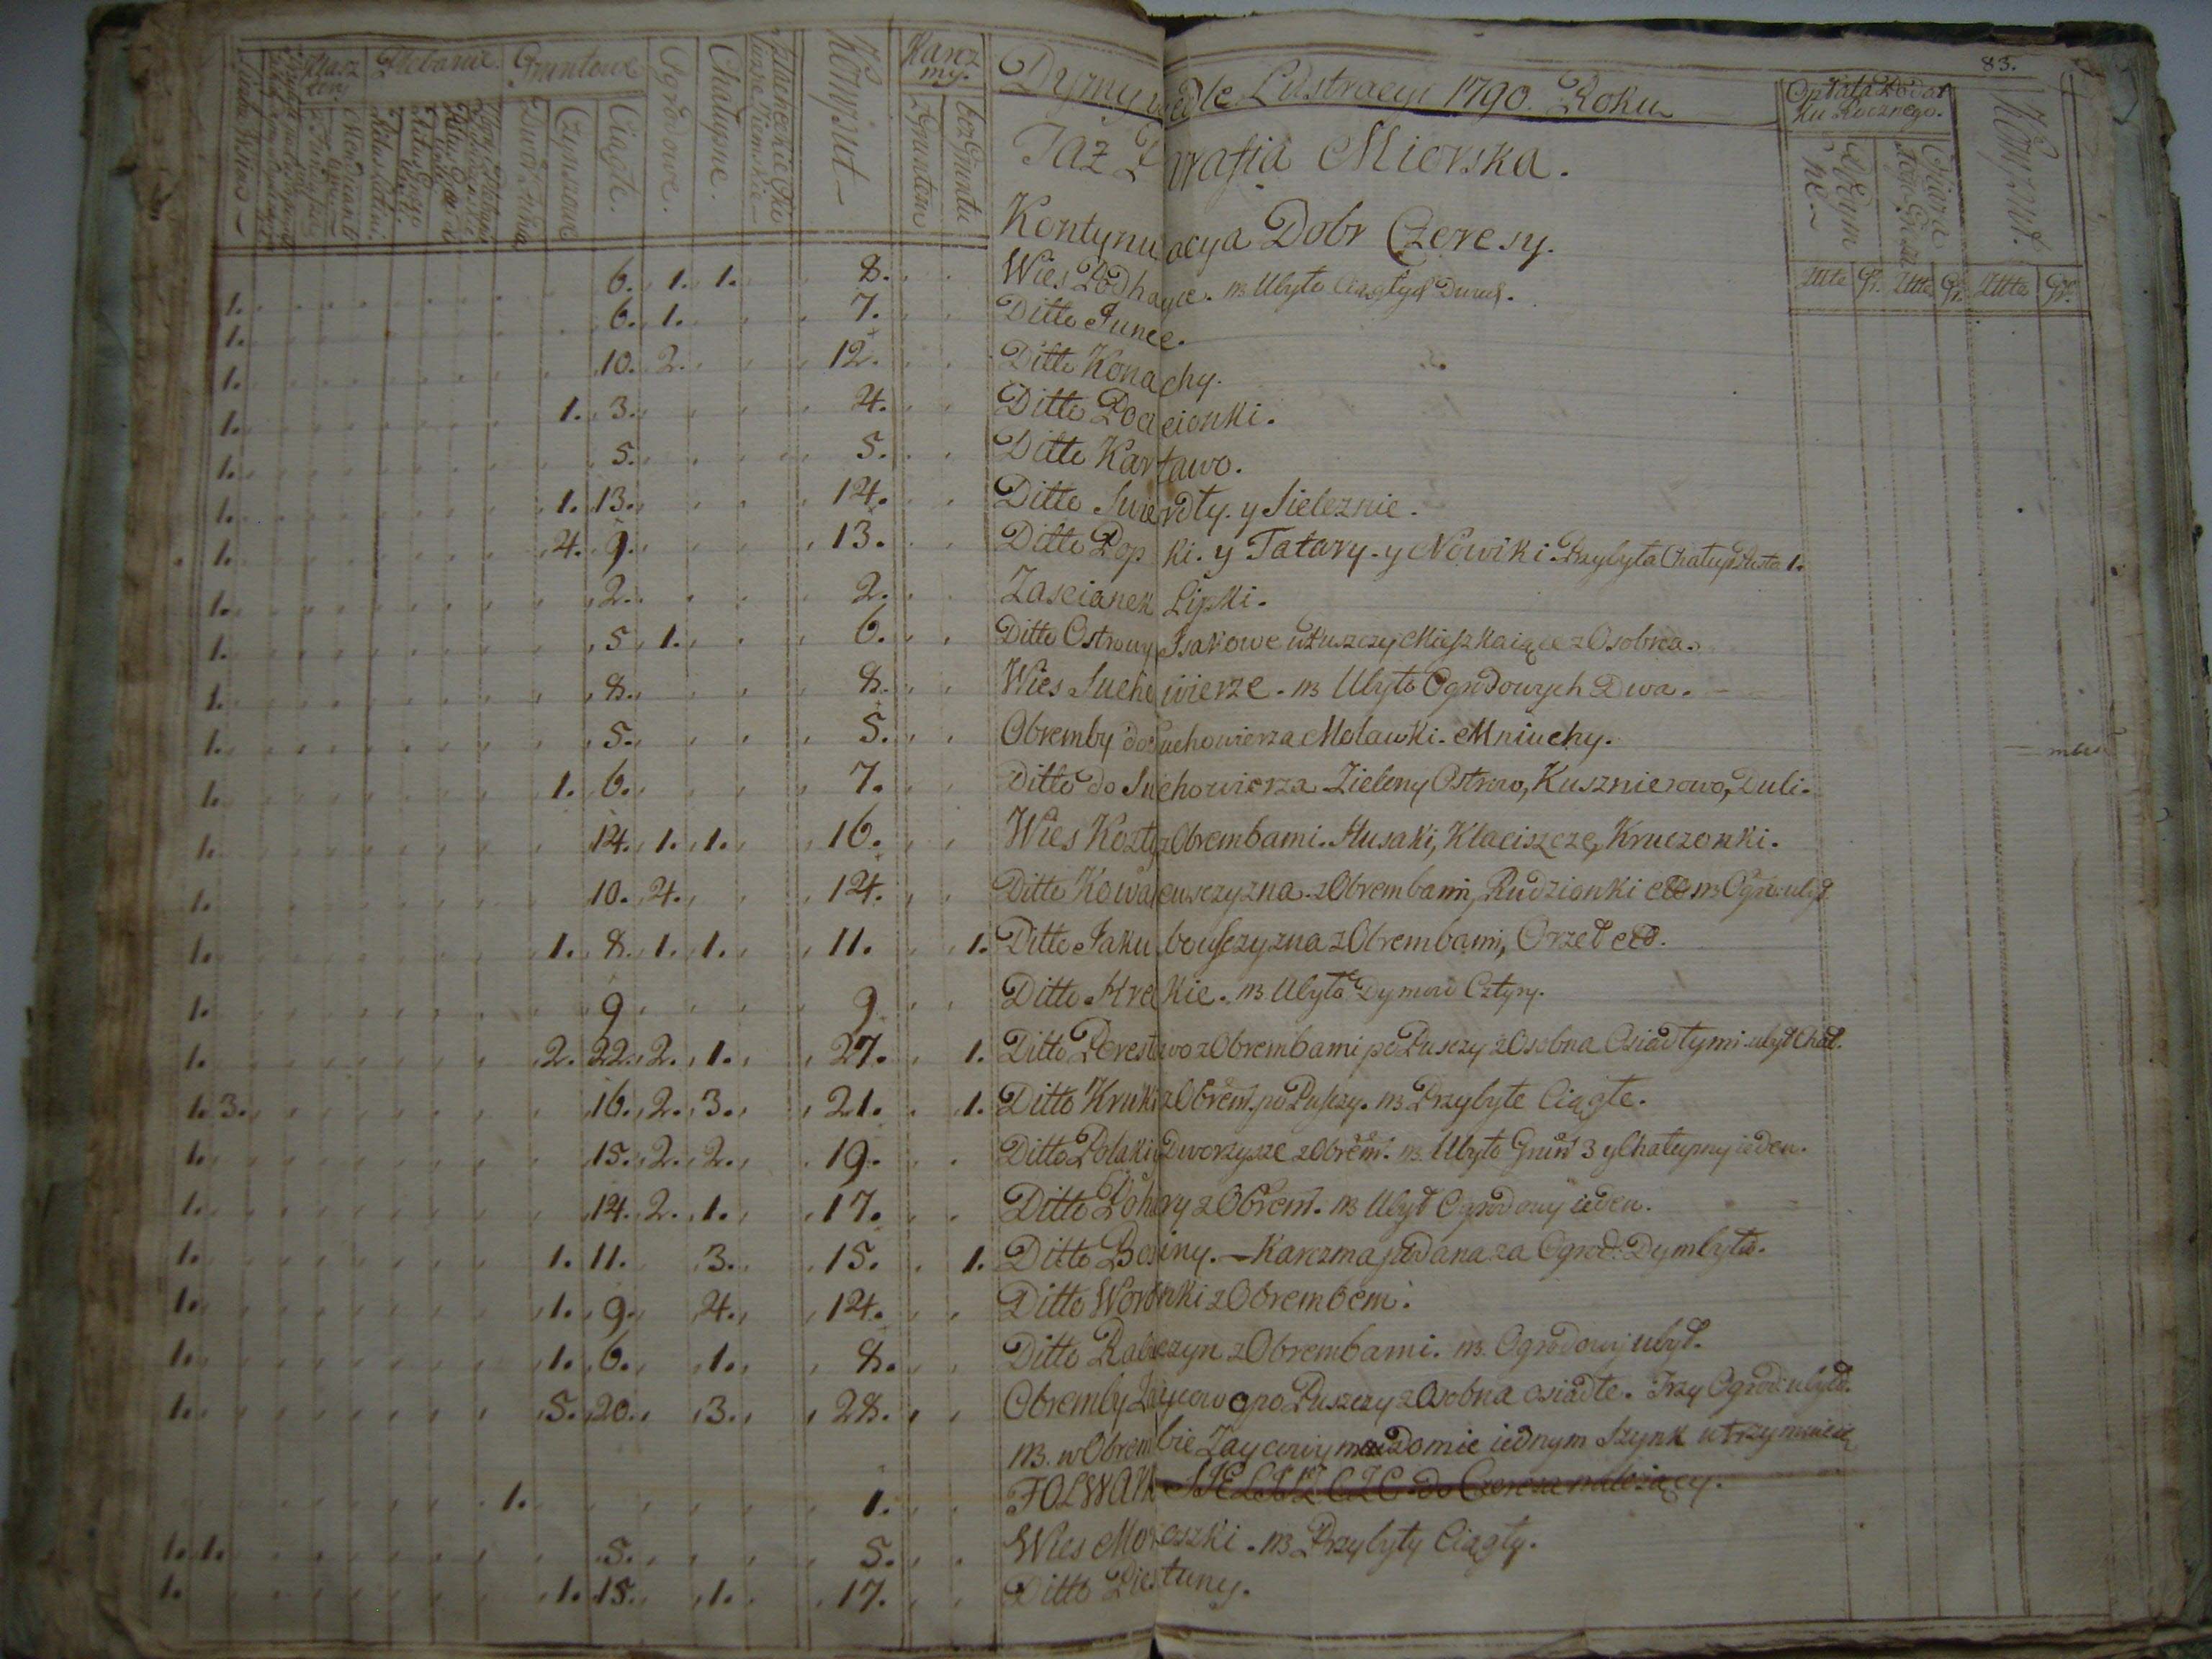 83.
Klasz tory Plebanie. Gruntowe Ogrodowe. Chałupne. Komput Karcz my.
Czynszowe Ciągłe. z Gruntem bez Gruntu
Dymy wedle Lustracyi 1790. Roku
Opłata Podat ku Rocznego. Komput.
Taż Parafia Miorska.
Kontynuacya Dobr Czeresy.
Złłe Gr. Złłe Gr. Złłe Gr.
1. 6. 1. 1. 8. Wies Podhayce. nB Ubyło Ciągłych Dwuch.
1. 6. 1. 7. Ditto Junce.
1. 10. 2. 12. Ditto Konachy.
1. 1. 3. 4. Ditto Pocieionki.
1. 5. 5. Ditto Kartawo.
1. 1. 13. 14. Ditto Swierdły. y Sieleznie.
1. 4. 9. 13. Ditto Popki. y Tatary. y Nowiki. Przybyła Chałup Pusta 1.
1. 2. 2. Zascianek Lipki.
1. 5 1. 6. Ditto Ostrowy Isakowe w Puszczy Mieszkaiące z Osobna.
1. 8. 8. Wies Suchowierze. nB Ubyło Ogrodowych Dwa.
1. 5. 5. Obremby do Suchowierza Malawki. Mniuchy.
1. 1. 6. 7. Ditto do Suchowierza Zieleny Ostrow, Kusznierowo, Duli.
1. 14. 1. 1. 16. Wies Kozły z Obrembami. Husaki, Klaciszcze, Kruczonki.
1. 10. 4. 14. Ditto Kowalewszczyzna z Obrembami, Rudzionki etc nB Ogro: ubył
1. 1. 8. 1. 1. 11. 1. Ditto Jakubowszczyzna z Obrembami, Orzeł etc.
1. 9 9. Ditto Hrekie. nB. Ubyło Dymow Cztyry.
1. 2. 22. 2. 1. 27. 1. Ditto Perestwo z Obrembami po Puszczy z Osobna Osiadłymi ubył Chał.
1. 3. 16. 2. 3. 21. 1. Ditto Kruki z Obrem. po Puszczy. nB Przybyłe Ciągłe.
1. 15. 2. 2. 19. Ditto Polaki Dworzysze z Obrem. nB Ubyło Grun 3 y Chałupny ieden.
1. 14. 2. 1. 17. Ditto Pohory z Obrem. nB Ubył Ogrodowy ieden.
1. 1. 11. 3. 15. 1. Ditto Bosiny. – Karczma podana za Ogrod: Dym była.
1. 1. 9. 4. 14. Ditto Woronki z Obrembem.
1. 1. 6. 1. 8. Ditto Rabczyn z Obrembami. nB. Ogrodowy ubył.
1. 5. 20. 3. 28. Obremby Zaycowo po Puszczy z Osobna osiadłe. Trzy Ogrod: ubyło.
nB. w Obrembie Zaycowym w Domie iednym Szynk utrzymuie się
1. 1. FOLWARK SIELISZCZE do Czeresa należący.
1. 1. 5. 5. Wies Moroszki. nB Przybyły Ciągły.
1. 1. 15. 1. 17. Ditto Piestuny.